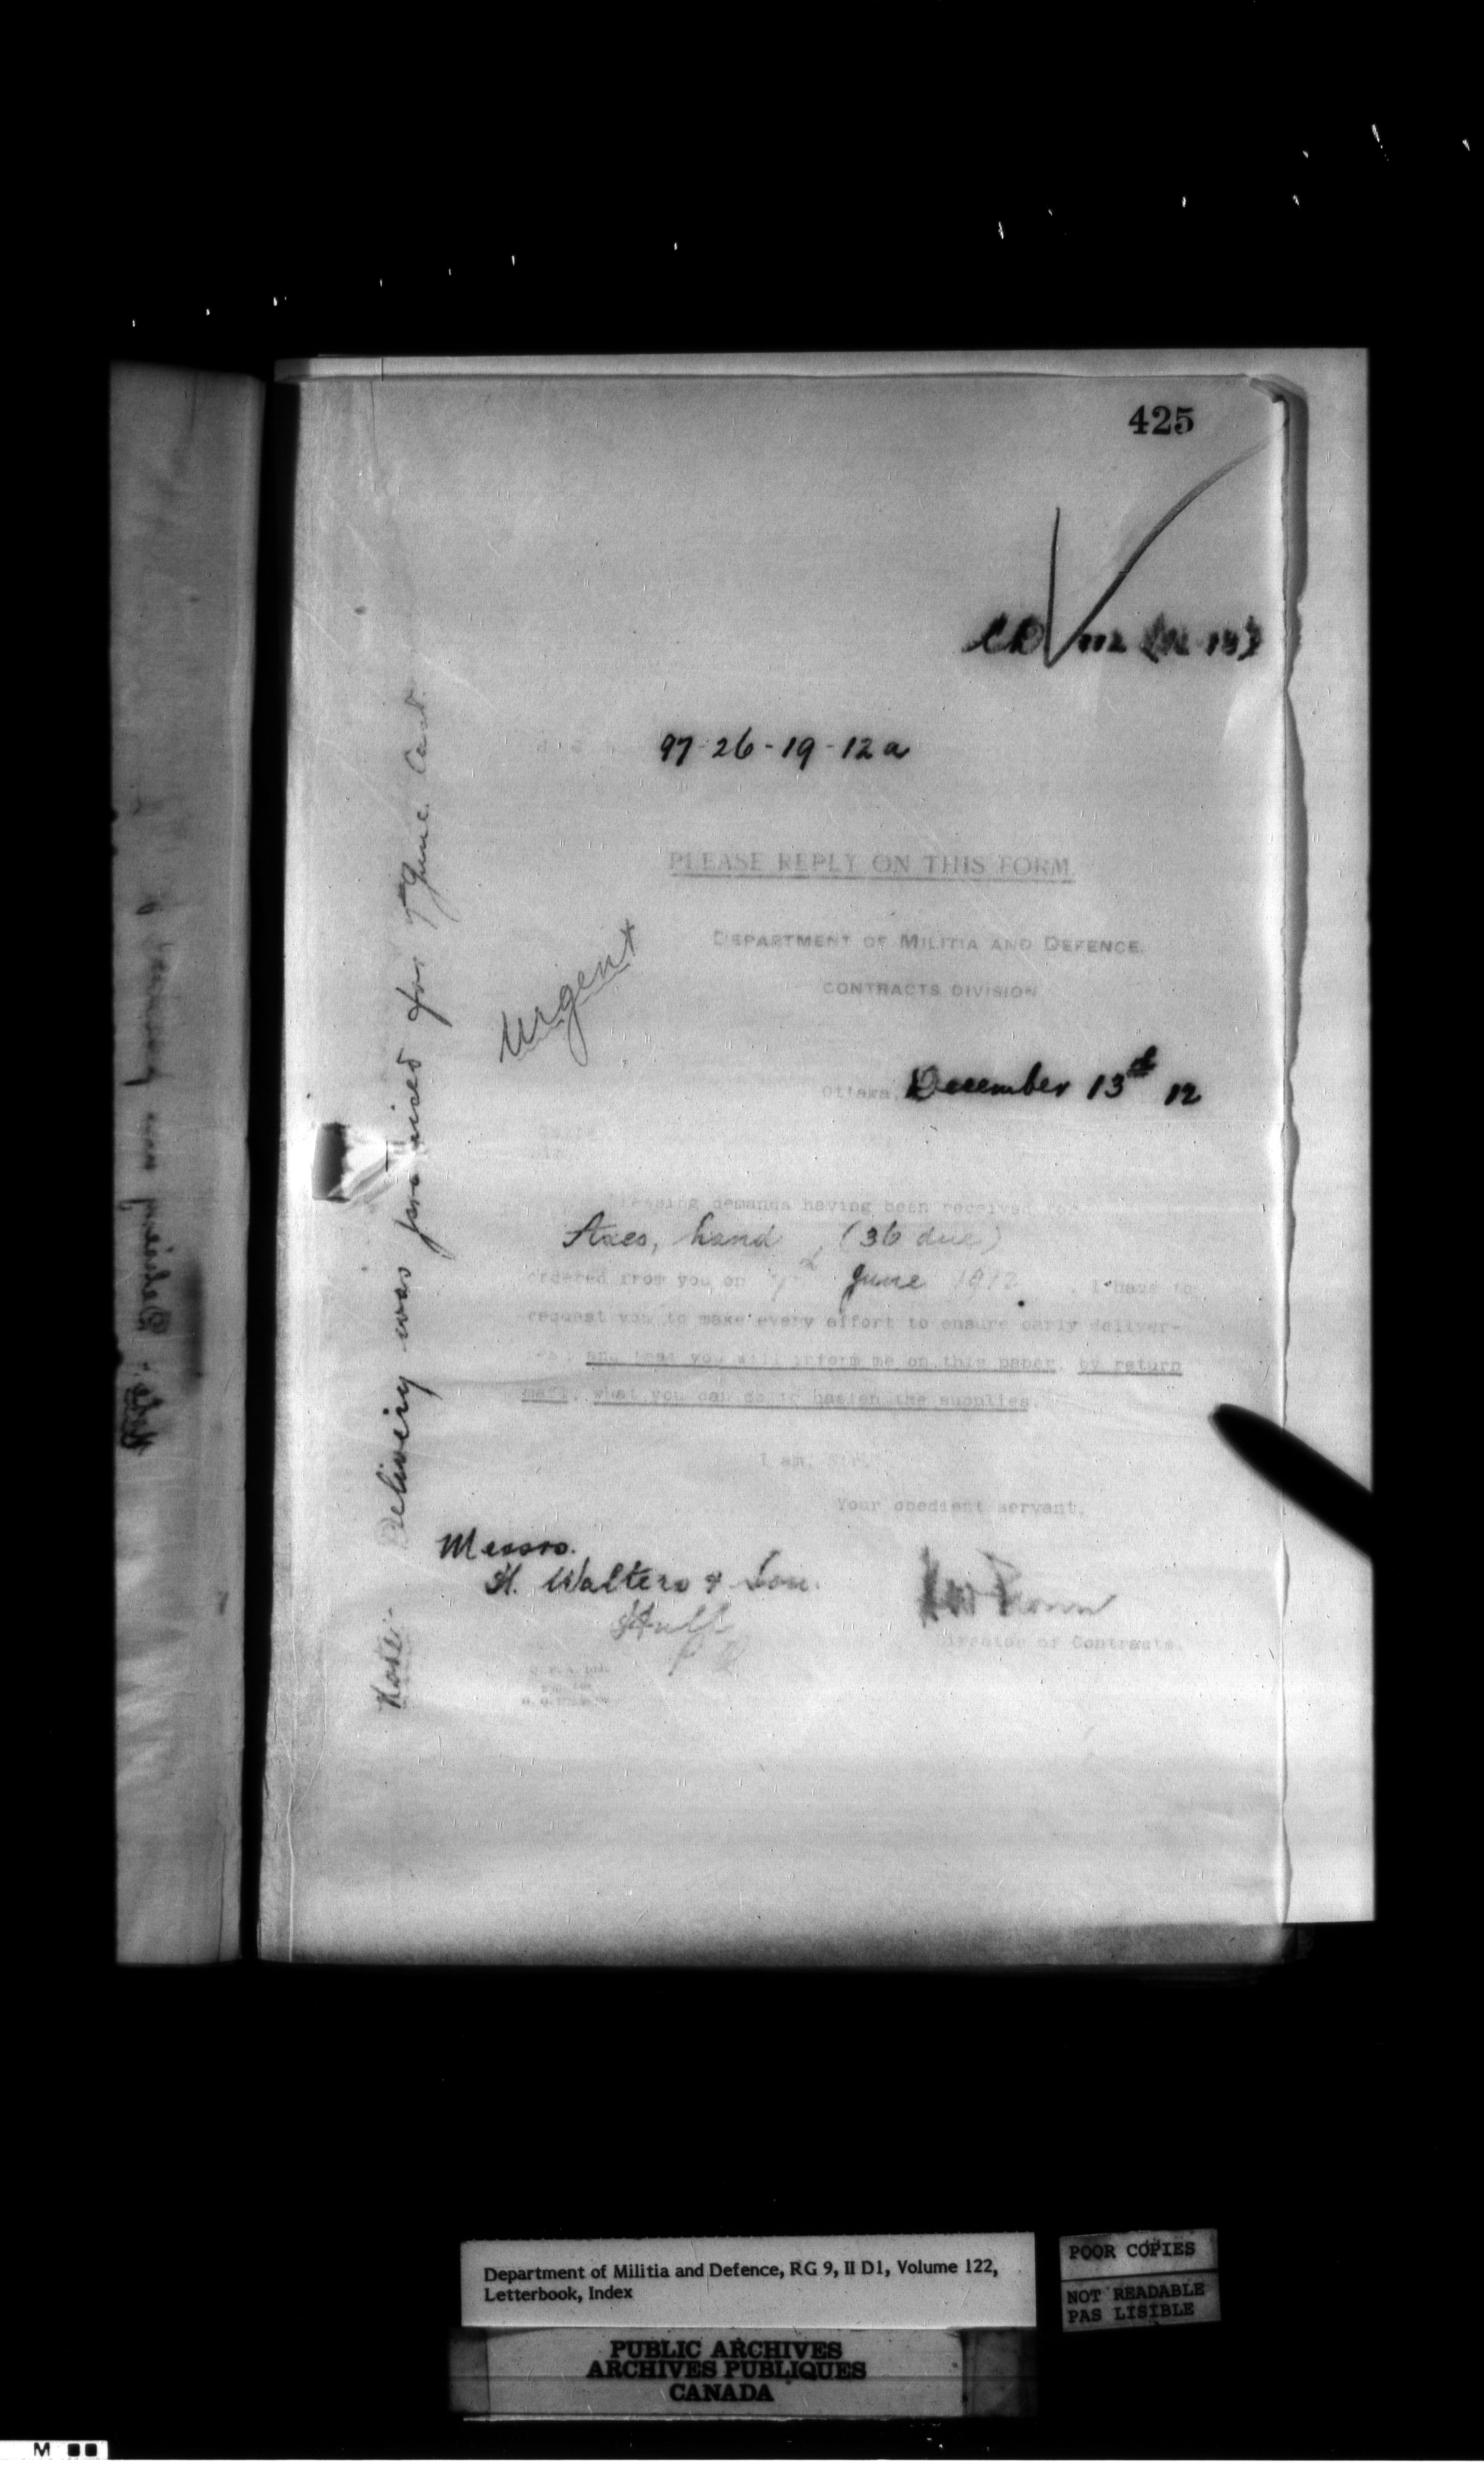 425
97-26-19-12a
PLEASE REPLY ON THIS FORM
DEPARTMENT OF MILITIA AND DEFENCE.
CONTRACTS DIVISION
Urgent
Ottawa, December 13th 12
Pressing demands having been received for
Axes, hand (36 due)
ordered from you on June 1912. I have to
request you to make every effort to ensure early deliver-
ies, and that you will inform me on this paper, by return
mail, what you can do to hasten the supplies.
I am, Sir,
Your obedient servant,
Messrs.
H. Walters & Son.
Hull
P Q
Director of Contracts.
Note:- Delivery was promised for June
Department of Militia and Defence, RG 9, II D1, Volume 122,
Letterbook, Index
POOR COPIES
NOT READABLE
PAS LISIBLE
PUBLIC ARCHIVES
ARCHIVES PUBLIQUES
CANADA
M